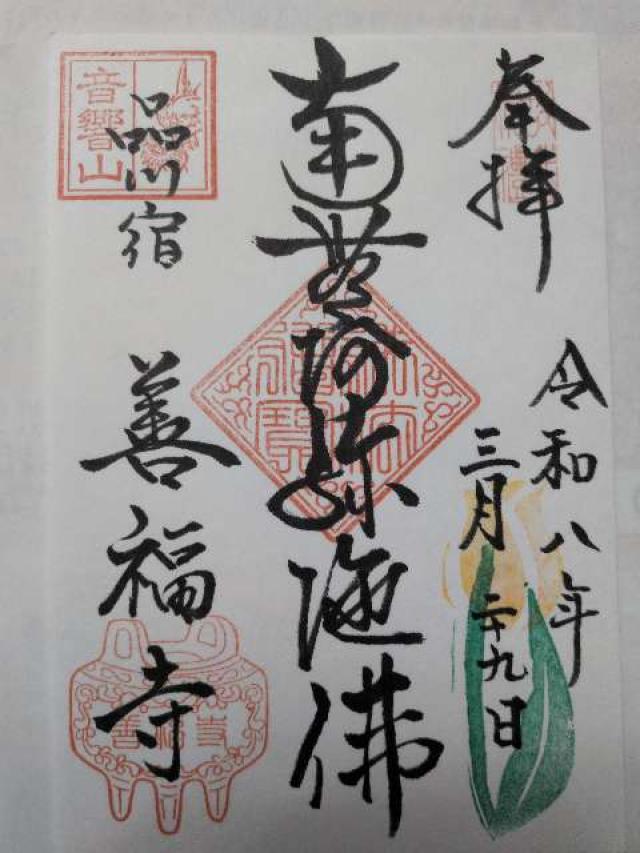 奉拝
令和八年
三月二十九日
南無阿弥陀佛
品川宿
善福寺
音響山
善福寺